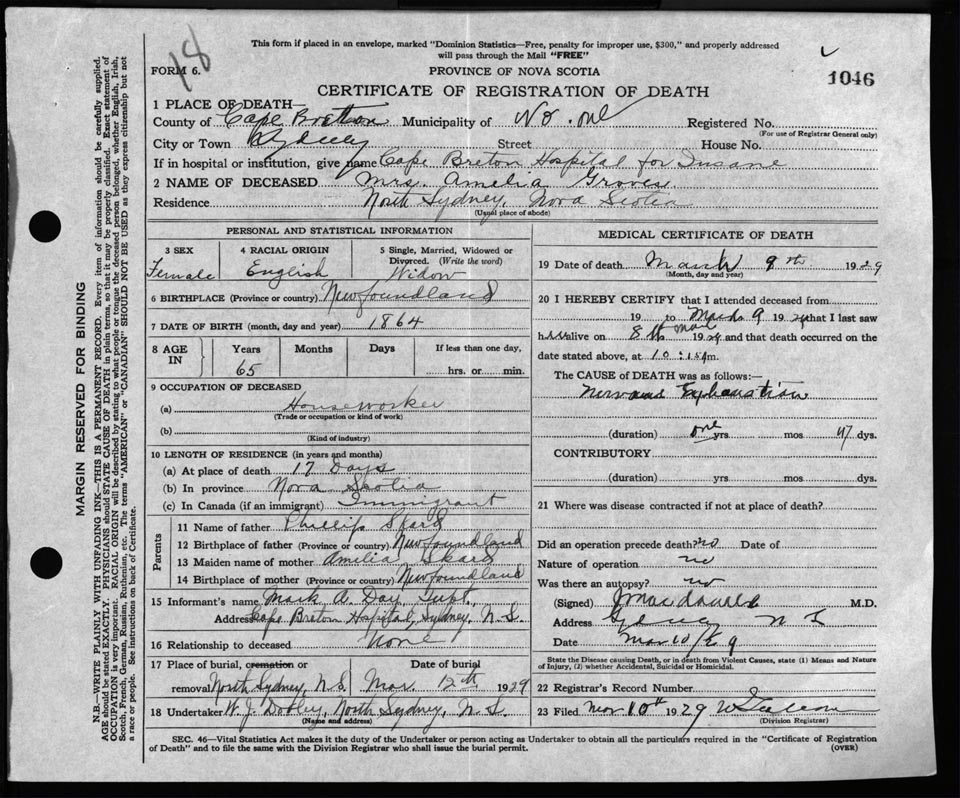 18
This form if placed in an envelope, marked "Dominion Statistics—Free, penalty for improper use, $300," and properly addressed
will pass through the Mail "FREE"
FORM 6.
PROVINCE OF NOVA SCOTIA
1046
CERTIFICATE OF REGISTRATION OF DEATH
1 PLACE OF DEATH—
County of Cape Breton Municipality of No. one Registered No.
(For use of Registrar General only)
City or Town Sydney Street House No.
If in hospital or institution, give name Cape Breton Hospital for Insane
2 NAME OF DECEASED Mrs. Amelia Groves
Residence North Sydney, Nova Scotia
(Usual place of abode)
PERSONAL AND STATISTICAL INFORMATION
3 SEX Female
4 RACIAL ORIGIN English
5 Single, Married, Widowed or Divorced. (Write the word) Widow
6 BIRTHPLACE (Province or country) Newfoundland
7 DATE OF BIRTH (month, day and year) 1864
8 AGE IN Years Months Days If less than one day,
65 hrs. or min.
9 OCCUPATION OF DECEASED
(a) Houseworker
(Trade or occupation or kind of work)
(b)
(Kind of industry)
10 LENGTH OF RESIDENCE (in years and months)
(a) At place of death 17 Days
(b) In province Nova Scotia
(c) In Canada (if an immigrant) Immigrant
Parents
11 Name of father Phillip
12 Birthplace of father (Province or country) Newfoundland
13 Maiden name of mother Amelia
14 Birthplace of mother (Province or country) Newfoundland
15 Informant's name Mark A. Day, Supt.
Address Cape Breton Hospital, Sydney, N.S.
16 Relationship to deceased None
17 Place of burial, cremation or removal Date of burial
North Sydney, N.S. Mar. 12th 1929
18 Undertaker W. J. Dooley, North Sydney, N.S.
(Name and address)
MEDICAL CERTIFICATE OF DEATH
19 Date of death March 9th 1929
(Month, day and year)
20 I HEREBY CERTIFY that I attended deceased from
19 to March 9 1929 that I last saw
her alive on 8th Mar 1929 and that death occurred on the
date stated above, at 10:15 m.
The CAUSE of DEATH was as follows:—
Nervous Exhaustion
(duration) one yrs mos 47 dys.
CONTRIBUTORY
(duration) yrs mos dys.
21 Where was disease contracted if not at place of death?
Did an operation precede death? no Date of
Nature of operation no
Was there an autopsy? no
(Signed) J Macdonald M.D.
Address Sydney N S
Date Mar 10/29
State the Disease causing Death, or in death from Violent Causes, state (1) Means and Nature
of Injury, (2) whether Accidental, Suicidal or Homicidal.
22 Registrar's Record Number
23 Filed Mar 10th 1929
(Division Registrar)
SEC. 46—Vital Statistics Act makes it the duty of the Undertaker or person acting as Undertaker to obtain all the particulars required in the "Certificate of Registration
of Death" and to file the same with the Division Registrar who shall issue the burial permit.
(OVER)
MARGIN RESERVED FOR BINDING
N.B.—WRITE PLAINLY WITH UNFADING INK—THIS IS A PERMANENT RECORD. Every item of information should be carefully supplied.
AGE should be stated EXACTLY. PHYSICIANS should STATE CAUSE OF DEATH in plain terms, so that it may be properly classified. Exact statement of
OCCUPATION is very important. RACIAL ORIGIN will be described by stating to what people or tongue the deceased person belonged, whether English, Irish,
Scotch, French, German, Russian, Ruthenian, etc. The terms "AMERICAN" or "CANADIAN" SHOULD NOT BE USED as they express citizenship but not
a race or people. See instructions on back of Certificate.